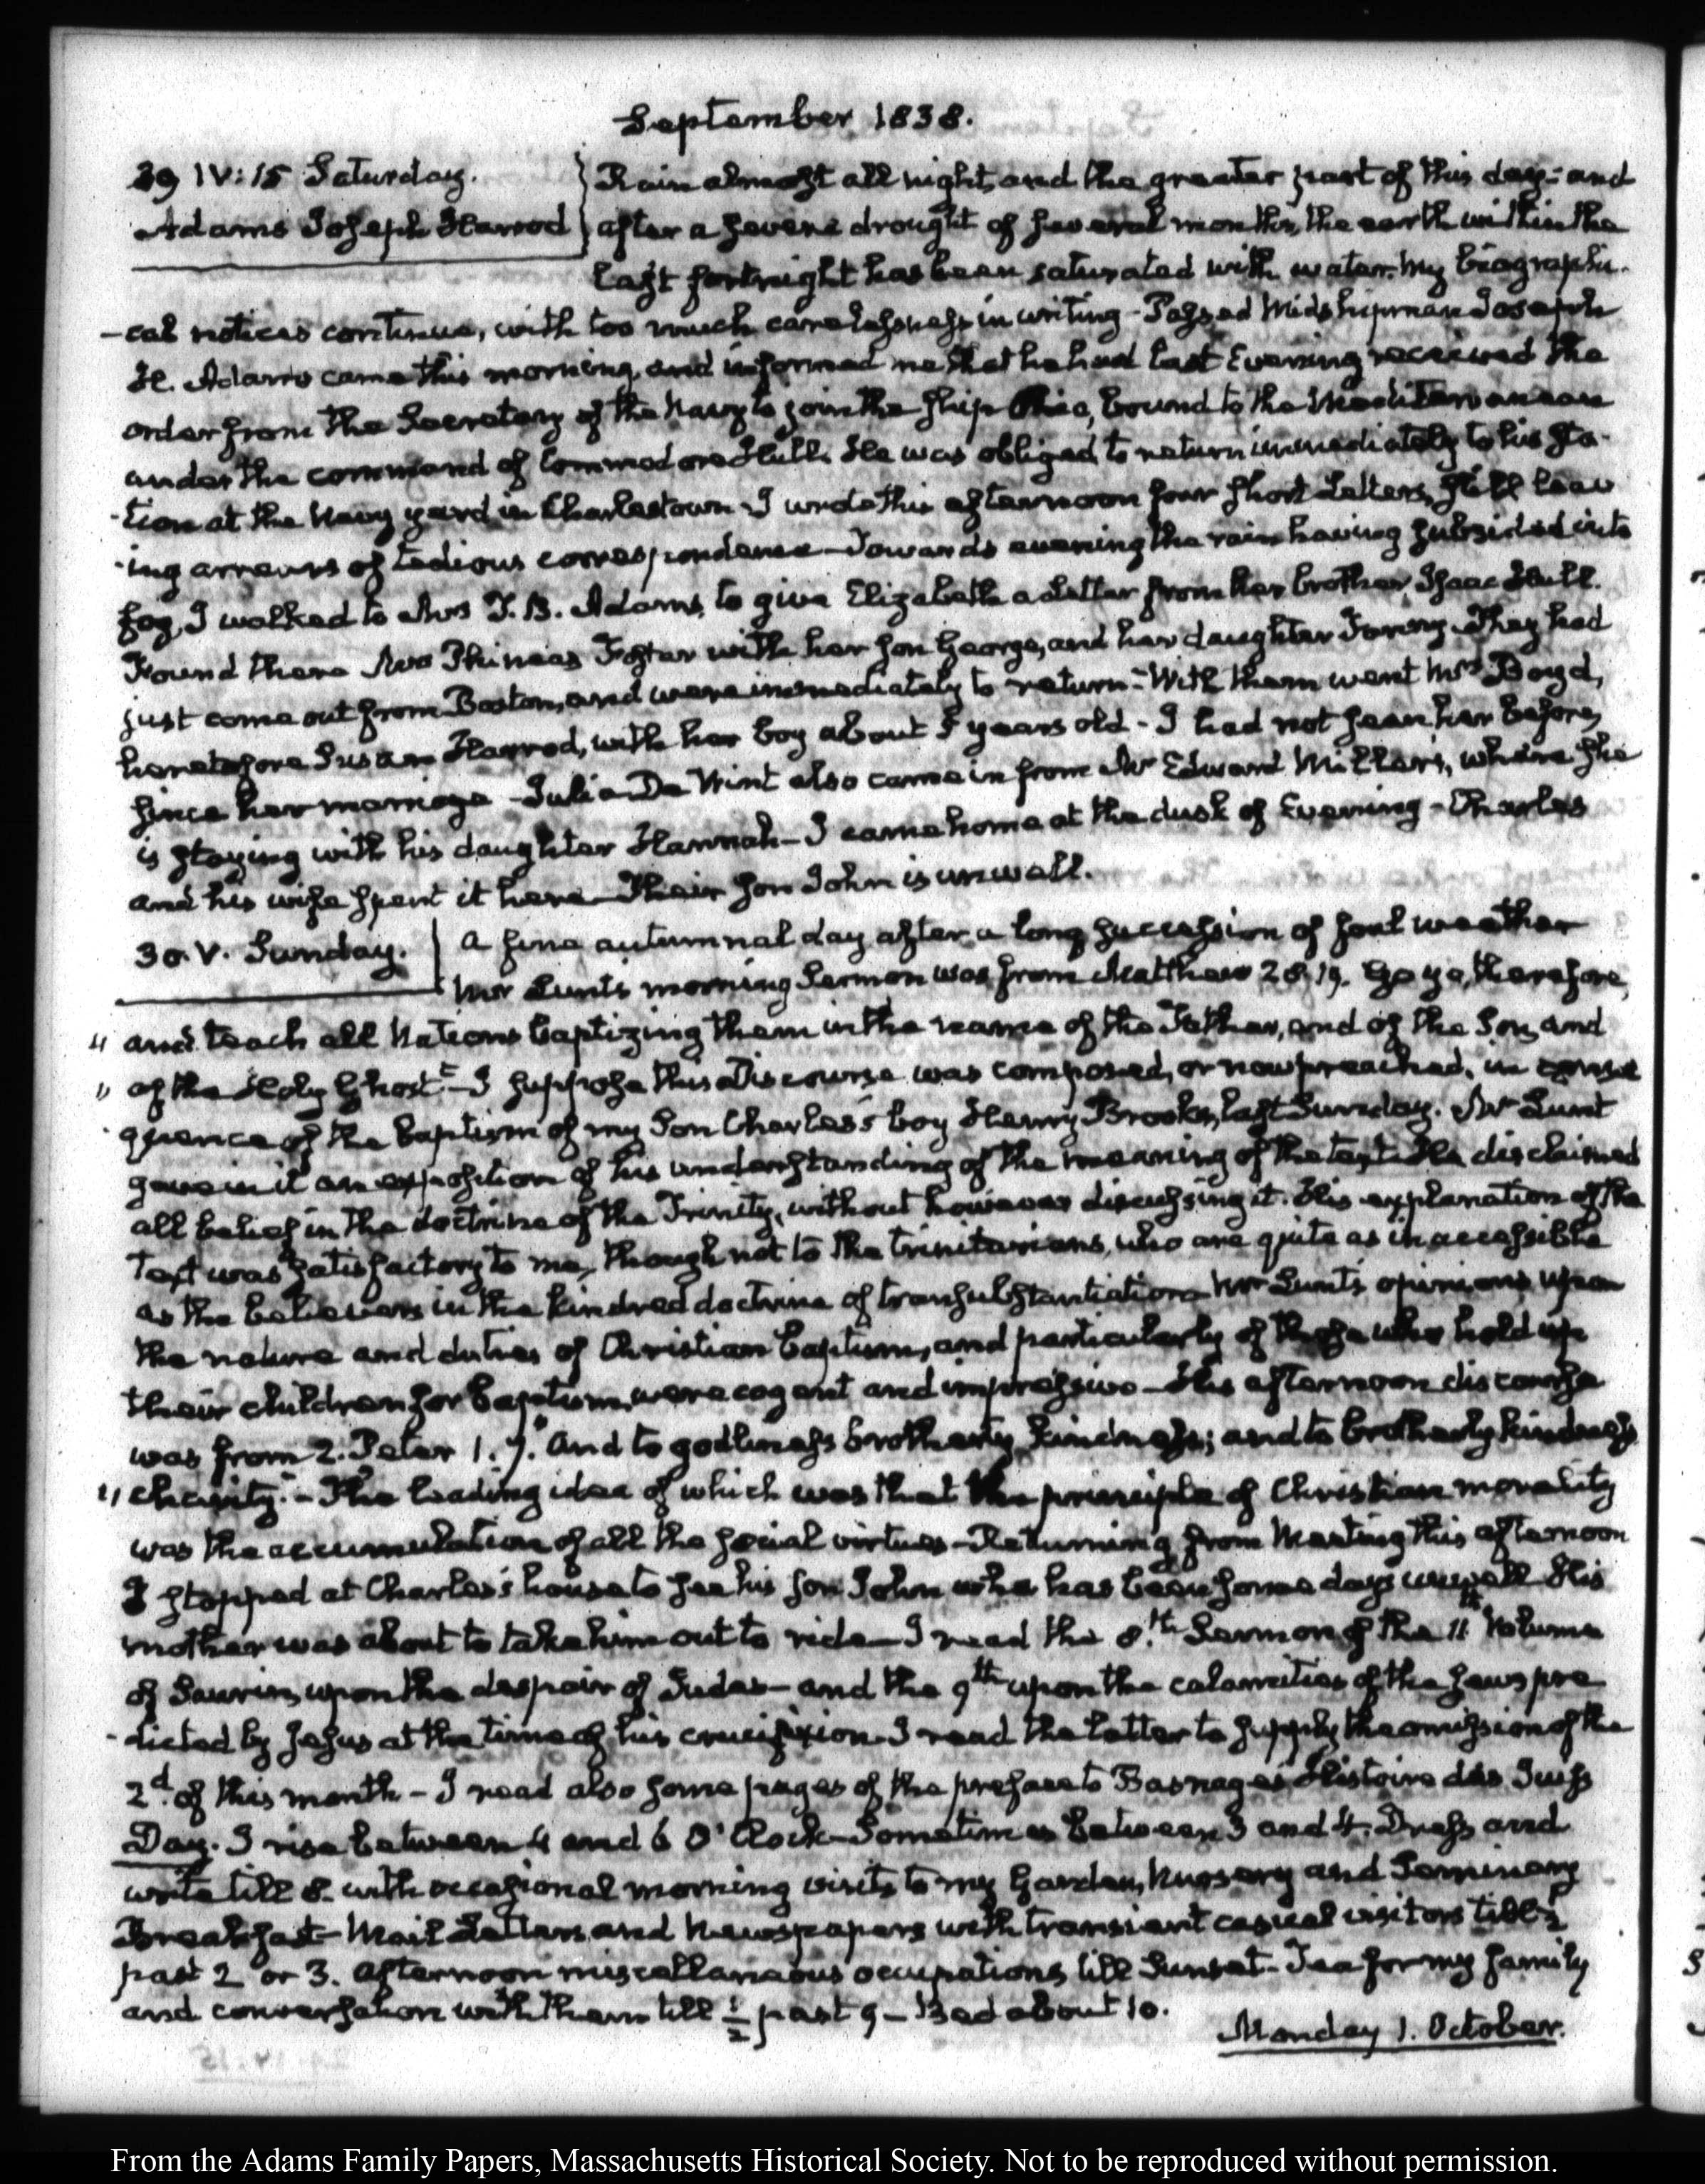 September 1838.
29 IV:15 Saturday.
Adams Joseph Harrod
Rain almost all night, and the greater part of this day: and
after a severe drought of several months, the earth within the
last fortnight has been saturated with water. My biographi-
-cal notices continue, with too much carelessness in writing - Passed Midshipman Joseph
H. Adams came this morning, and informed me that he had last Evening received the
order from the Secretary of the Navy to join the ship Ohio, bound to the Mediterranean
under the command of Commodore Hull. He was obliged to return immediately to his sta-
-tion at the Navy yard in Charlestown - I wrote this afternoon four short Letters, still leav
-ing arrears of tedious correspondence - Towards evening the rain having subsided into
fog, I walked to Mrs T. B. Adams, to give Elizabeth a Letter from her brother, Isaac Hull.
Found there Mrs Phineas Foster with her son George, and her daughter Fanny. They had
just come out from Boston, and were immediately to return - With them went Mrs Boyd,
heretofore Susan Harrod, with her boy about 5 years old - I had not seen her before,
since her marriage - Julia De Wint also came in from Mr Edward Miller's, where she
is staying with his daughter Hannah - I came home at the dusk of Evening - Charles
and his wife spent it here - Their son John is unwell.
30. V. Sunday.
A fine autumnal day after a long succession of foul weather
Mr Lunt's morning Sermon was from Matthew 28.19. Go ye, therefore,
" and teach all Nations baptizing them in the name of the Father, and of the Son, and
" of the Holy Ghost" - I suppose this Discourse was composed, or now preached, in conse
quence of the baptism of my Son Charles's boy Henry Brooks, last Sunday. Mr Lunt
gave in it an exposition of his understanding of the meaning of the text. He disclaimed
all belief in the doctrine of the Trinity, without however discussing it. His explanation of the
Text was satisfactory to me, though not to the trinitarians, who are quite as inaccessible
as the believers in the kindred doctrine of transubstantiation - Mr Lunt's opinions upon
the nature and duties of Christian baptism, and particularly of those who hold up
their children for baptism, were cogent and impressive - His afternoon discourse
was from 2. Peter 1.7. "And to godliness brotherly kindness; and to brotherly kindness
" charity." - The leading idea of which was that the principle of Christian morality
was the accumulation of all the social virtues - Returning from Meeting this afternoon
I stopped at Charles's house to see his son John who has been some days unwell His
mother was about to take him out to ride - I read the 8.th Sermon of the 11th Volume
of Saurin, upon the despair of Judas - and the 9th upon the calamities of the Jews pre
-dicted by Jesus at the time of his crucifixion - I read the latter to supply the omission of the
2d. of this month - I read also some pages of the preface to Basnage's Histoire des Juifs
Day. I rise between 4 and 6 O'Clock - Sometimes between 3 and 4. Dress and
write till 8. with occasional morning visits to my Garden, Nursery and Seminary
Breakfast - Mail Letters and Newspapers with transient casual visitors till ½
past 2 or 3. afternoon miscellaneous occupations till Sunset - Tea for my family
and conversation with them till ½ past 9 - Bed about 10.
Monday 1. October.
From the Adams Family Papers, Massachusetts Historical Society. Not to be reproduced without permission.